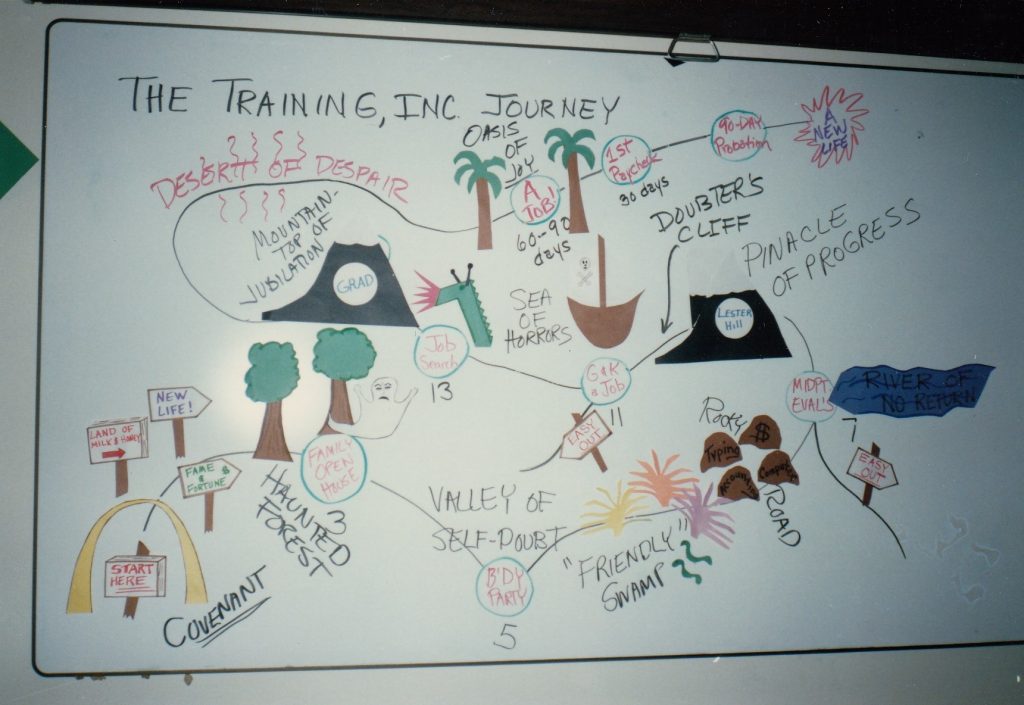 THE TRAINING, INC. JOURNEY
DESERT OF DESPAIR
OASIS
OF
JOY
A
JOB!
60-90
days
1st
Paycheck
30 days
90-DAY
Probation
A
NEW
LIFE
MOUNTAIN-
TOP OF
JUBILATION
GRAD
SEA
OF
HORRORS
DOUBTER'S
CLIFF
PINACLE
OF PROGRESS
LESTER
Hill
Job
Search
13
G&K
a Job
11
EASY
OUT
MIDPT
EVAL'S
7
RIVER OF
NO RETURN
EASY
OUT
Rocky
$
Typing
ROAD
NEW
LIFE!
LAND OF
MILK & HONEY
FAME $
&
FORTUNE
START
HERE
COVENANT
HAUNTED
FOREST
FAMILY
OPEN
HOUSE
3
VALLEY OF
SELF-DOUBT
B'DY
PARTY
5
"FRIENDLY"
SWAMP